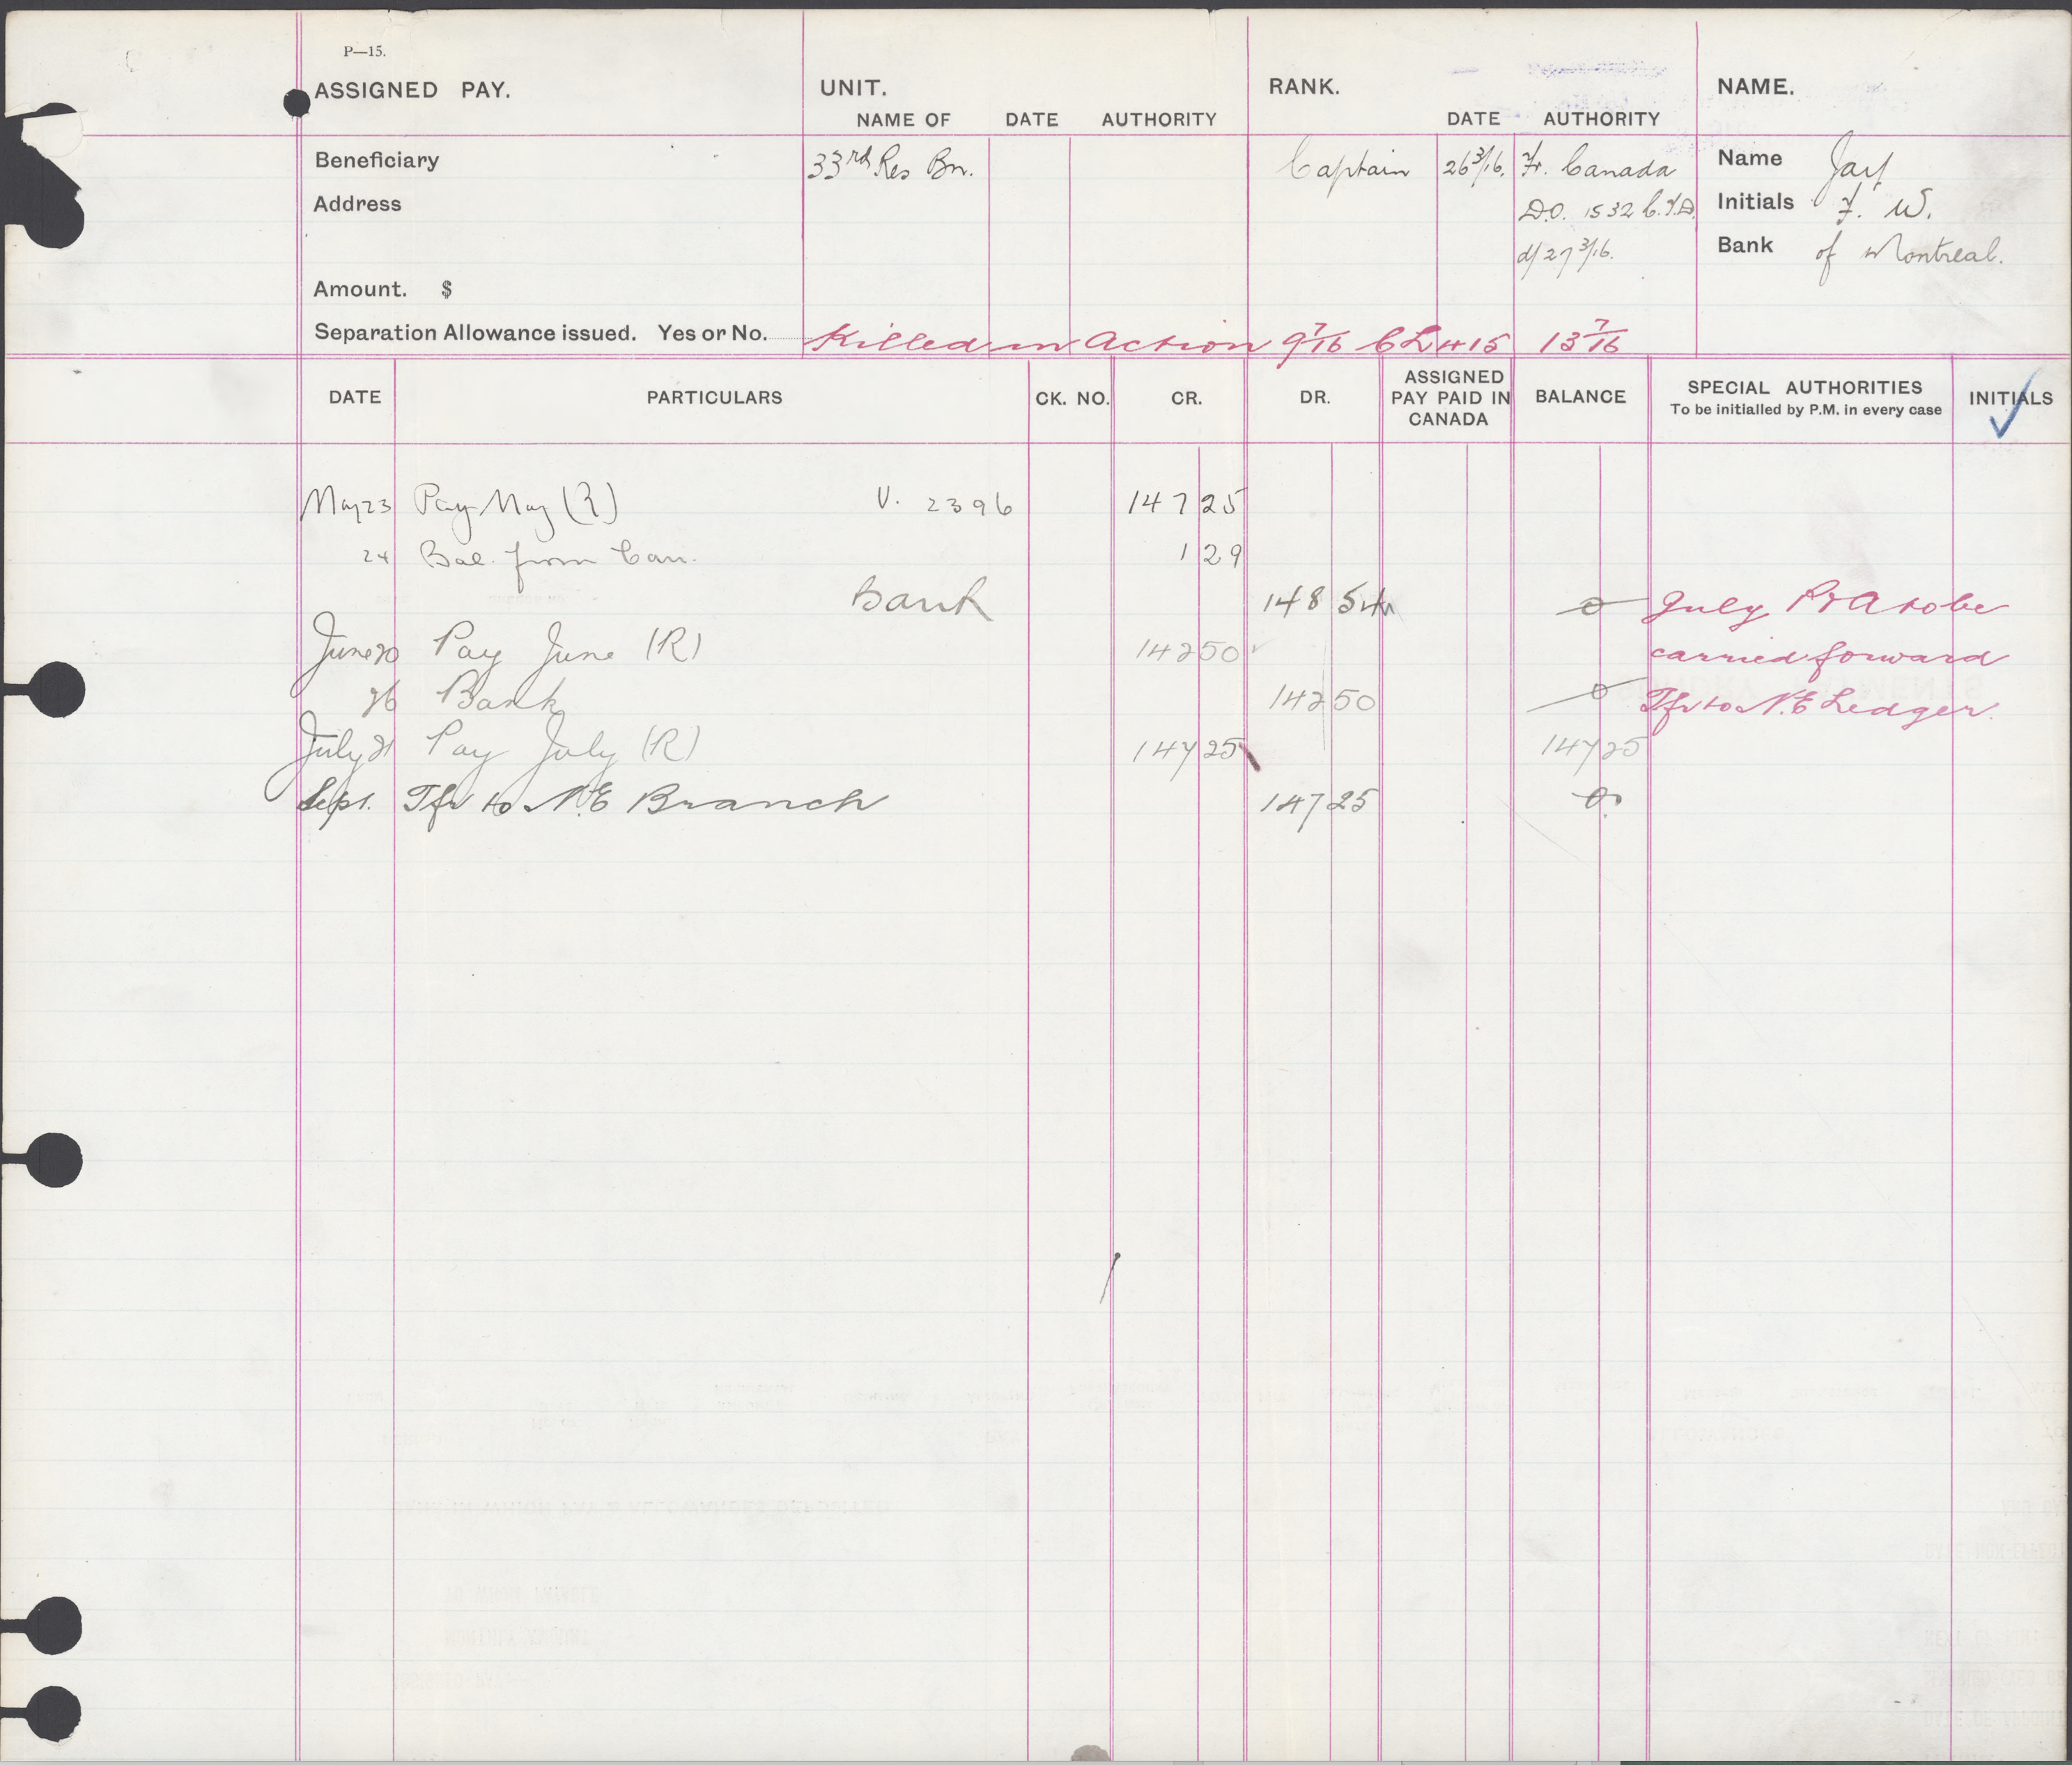 P—15.
ASSIGNED PAY. UNIT. RANK. NAME.
NAME OF DATE AUTHORITY DATE AUTHORITY
Beneficiary 33rd Res Bn. Captain 26 3/16. Fr. Canada Name
Address D.O. 1532 C.T.D. Initials F. W.
d/27 3/16. Bank of Montreal.
Amount. $
Separation Allowance issued. Yes or No. Killed in Action 9 7/16 CL 415 13 7/16
DATE PARTICULARS CK. NO. CR. DR. ASSIGNED PAY PAID IN CANADA BALANCE SPECIAL AUTHORITIES INITIALS
To be initialled by P.M. in every case
May 23 Pay May (R) V. 2396 147 25
24 Bal. from Can. 1 29
Bank 148 54 0 July P & A to be
June 20 Pay June (R) 142 50 carried forward
26 Bank 142 50 0 Tfr to N.E Ledger.
July 21 Pay July (R) 147 25 147 25
Sept. Tfr to N.E Branch 147 25 0